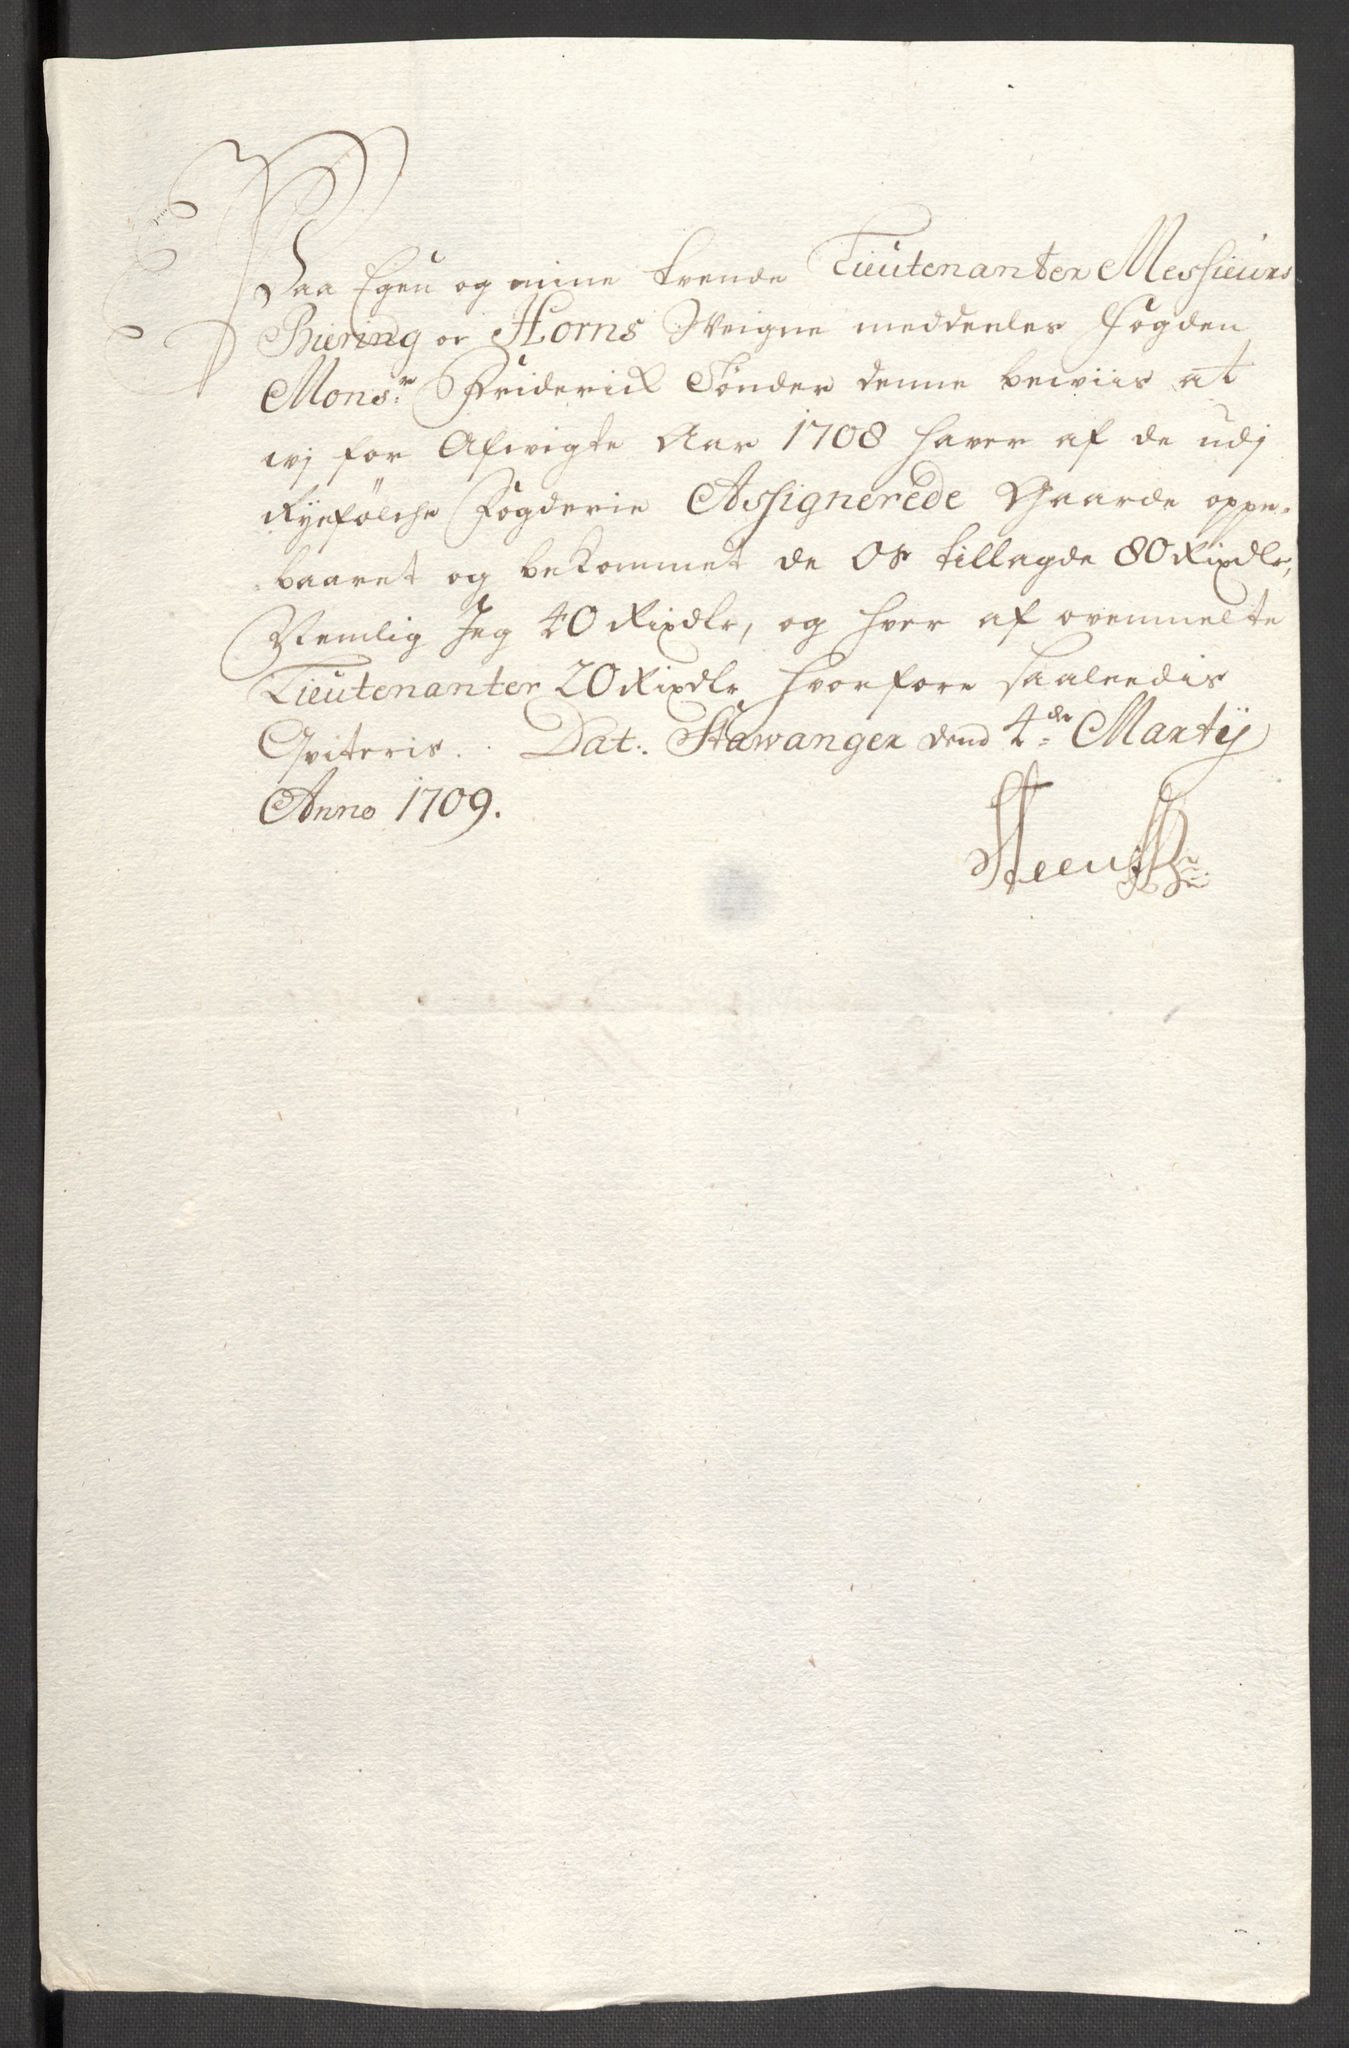 Paa Egen og mine tvende Lieutenanter Messieurs
Biering oc Horns Weigne meddeeles Fogden
Monsr. Friderick Sønder denne beviis at
wj for Afvigte Aar 1708 haver af de udj
Ryefølche Fogderie Assignerede Gaarde oppe-
baaret og bekommet de Os tillagde 80 Rixdlr,
Nemlig Jeg 40 Rixdlr, og hver af ovenmelte
Lieutenanter 20 Rixdlr hvorfore saaleedis
Qviteris. Dat. Stawanger dend 4de Martij
Anno 1709.